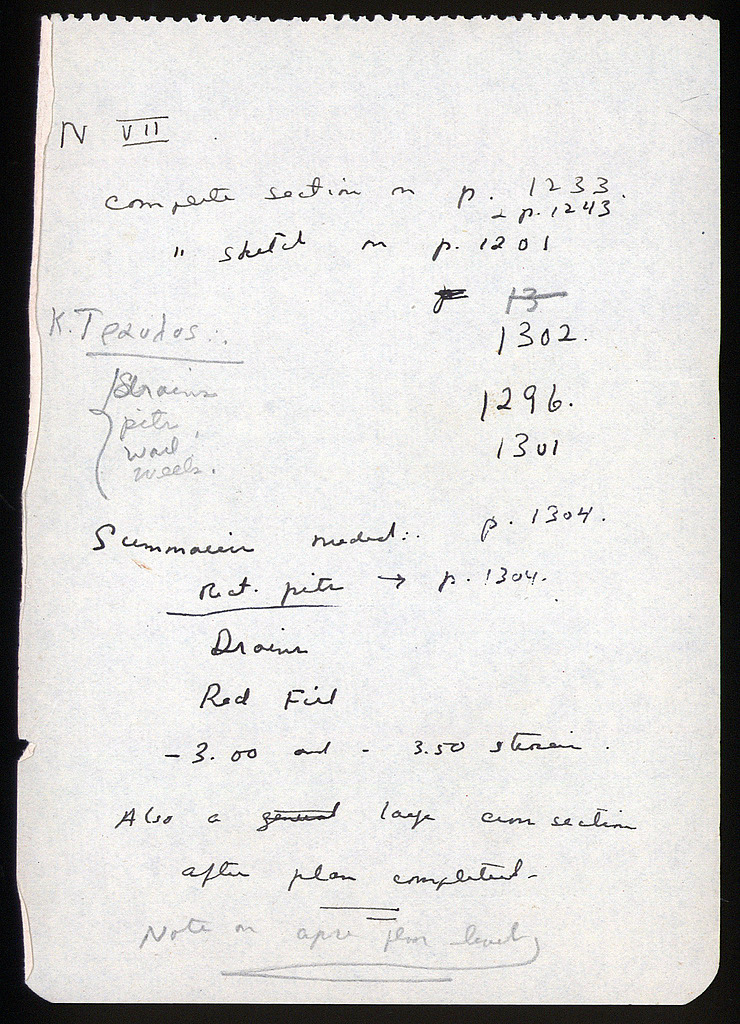 N VII
complete section on p. 1233.
& p. 1243
" sketch on p. 1201
p 13
1302.
K. Τραυλος:.
Drains
1296.
pits,
wall,
1301
wells.
Summaries needed:. p. 1304.
Rect. pits → p. 1304.
Drains
Red Fill
- 3.00 and - 3.50 
Also a general large cross section
after plan completed -
Note on apse floor level